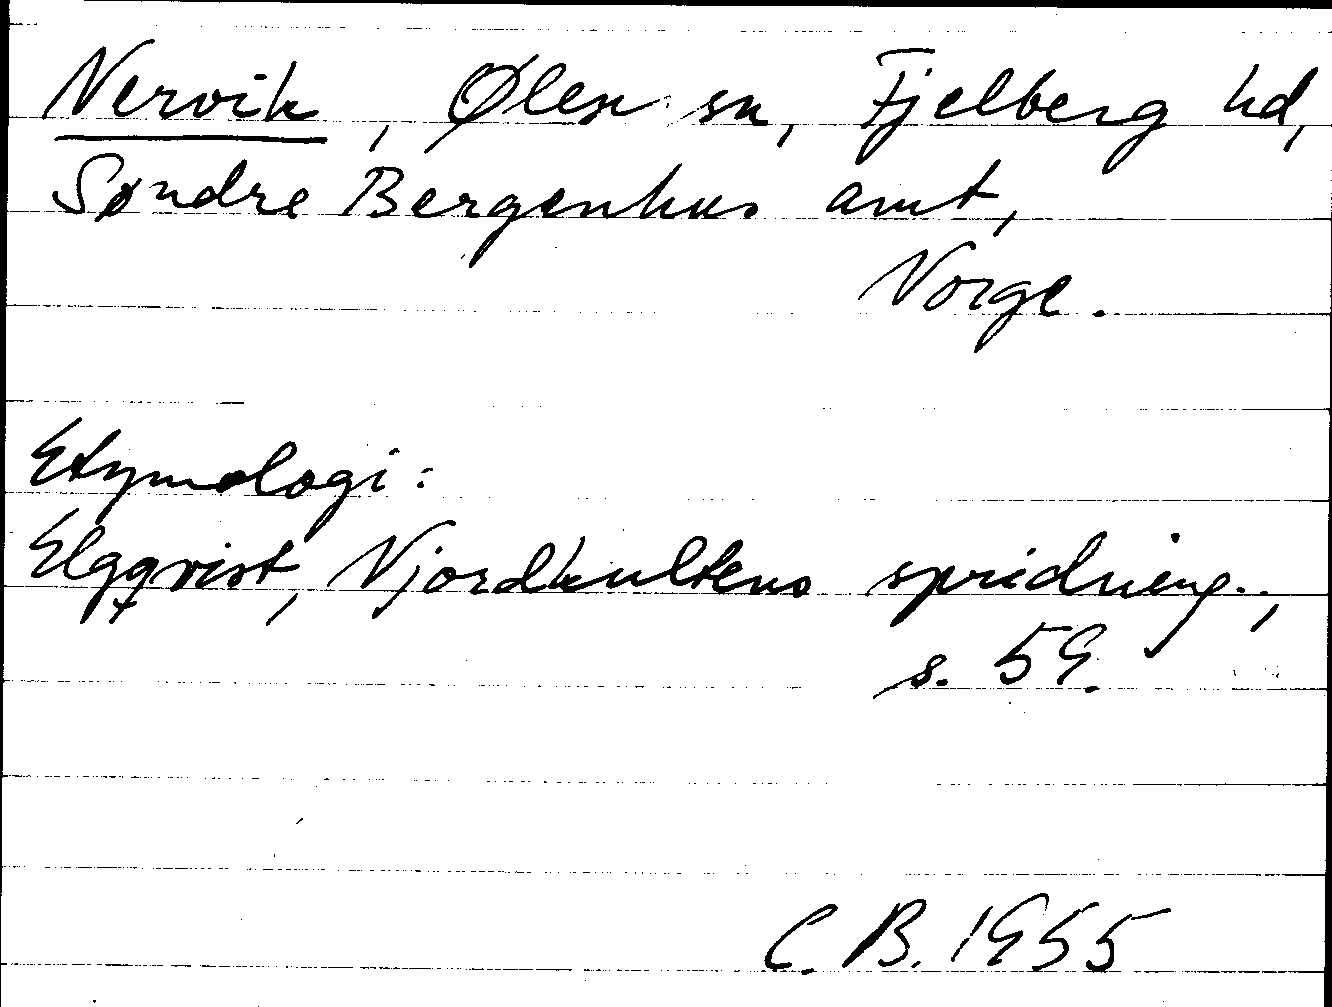 Nervik, Ølen sn, Fjelberg hd,
Søndre Bergenhus amt,
Norge.
Etymologi:
Elgqvist, Njordkultens spridning.,
s. 59.
C. B. 1955